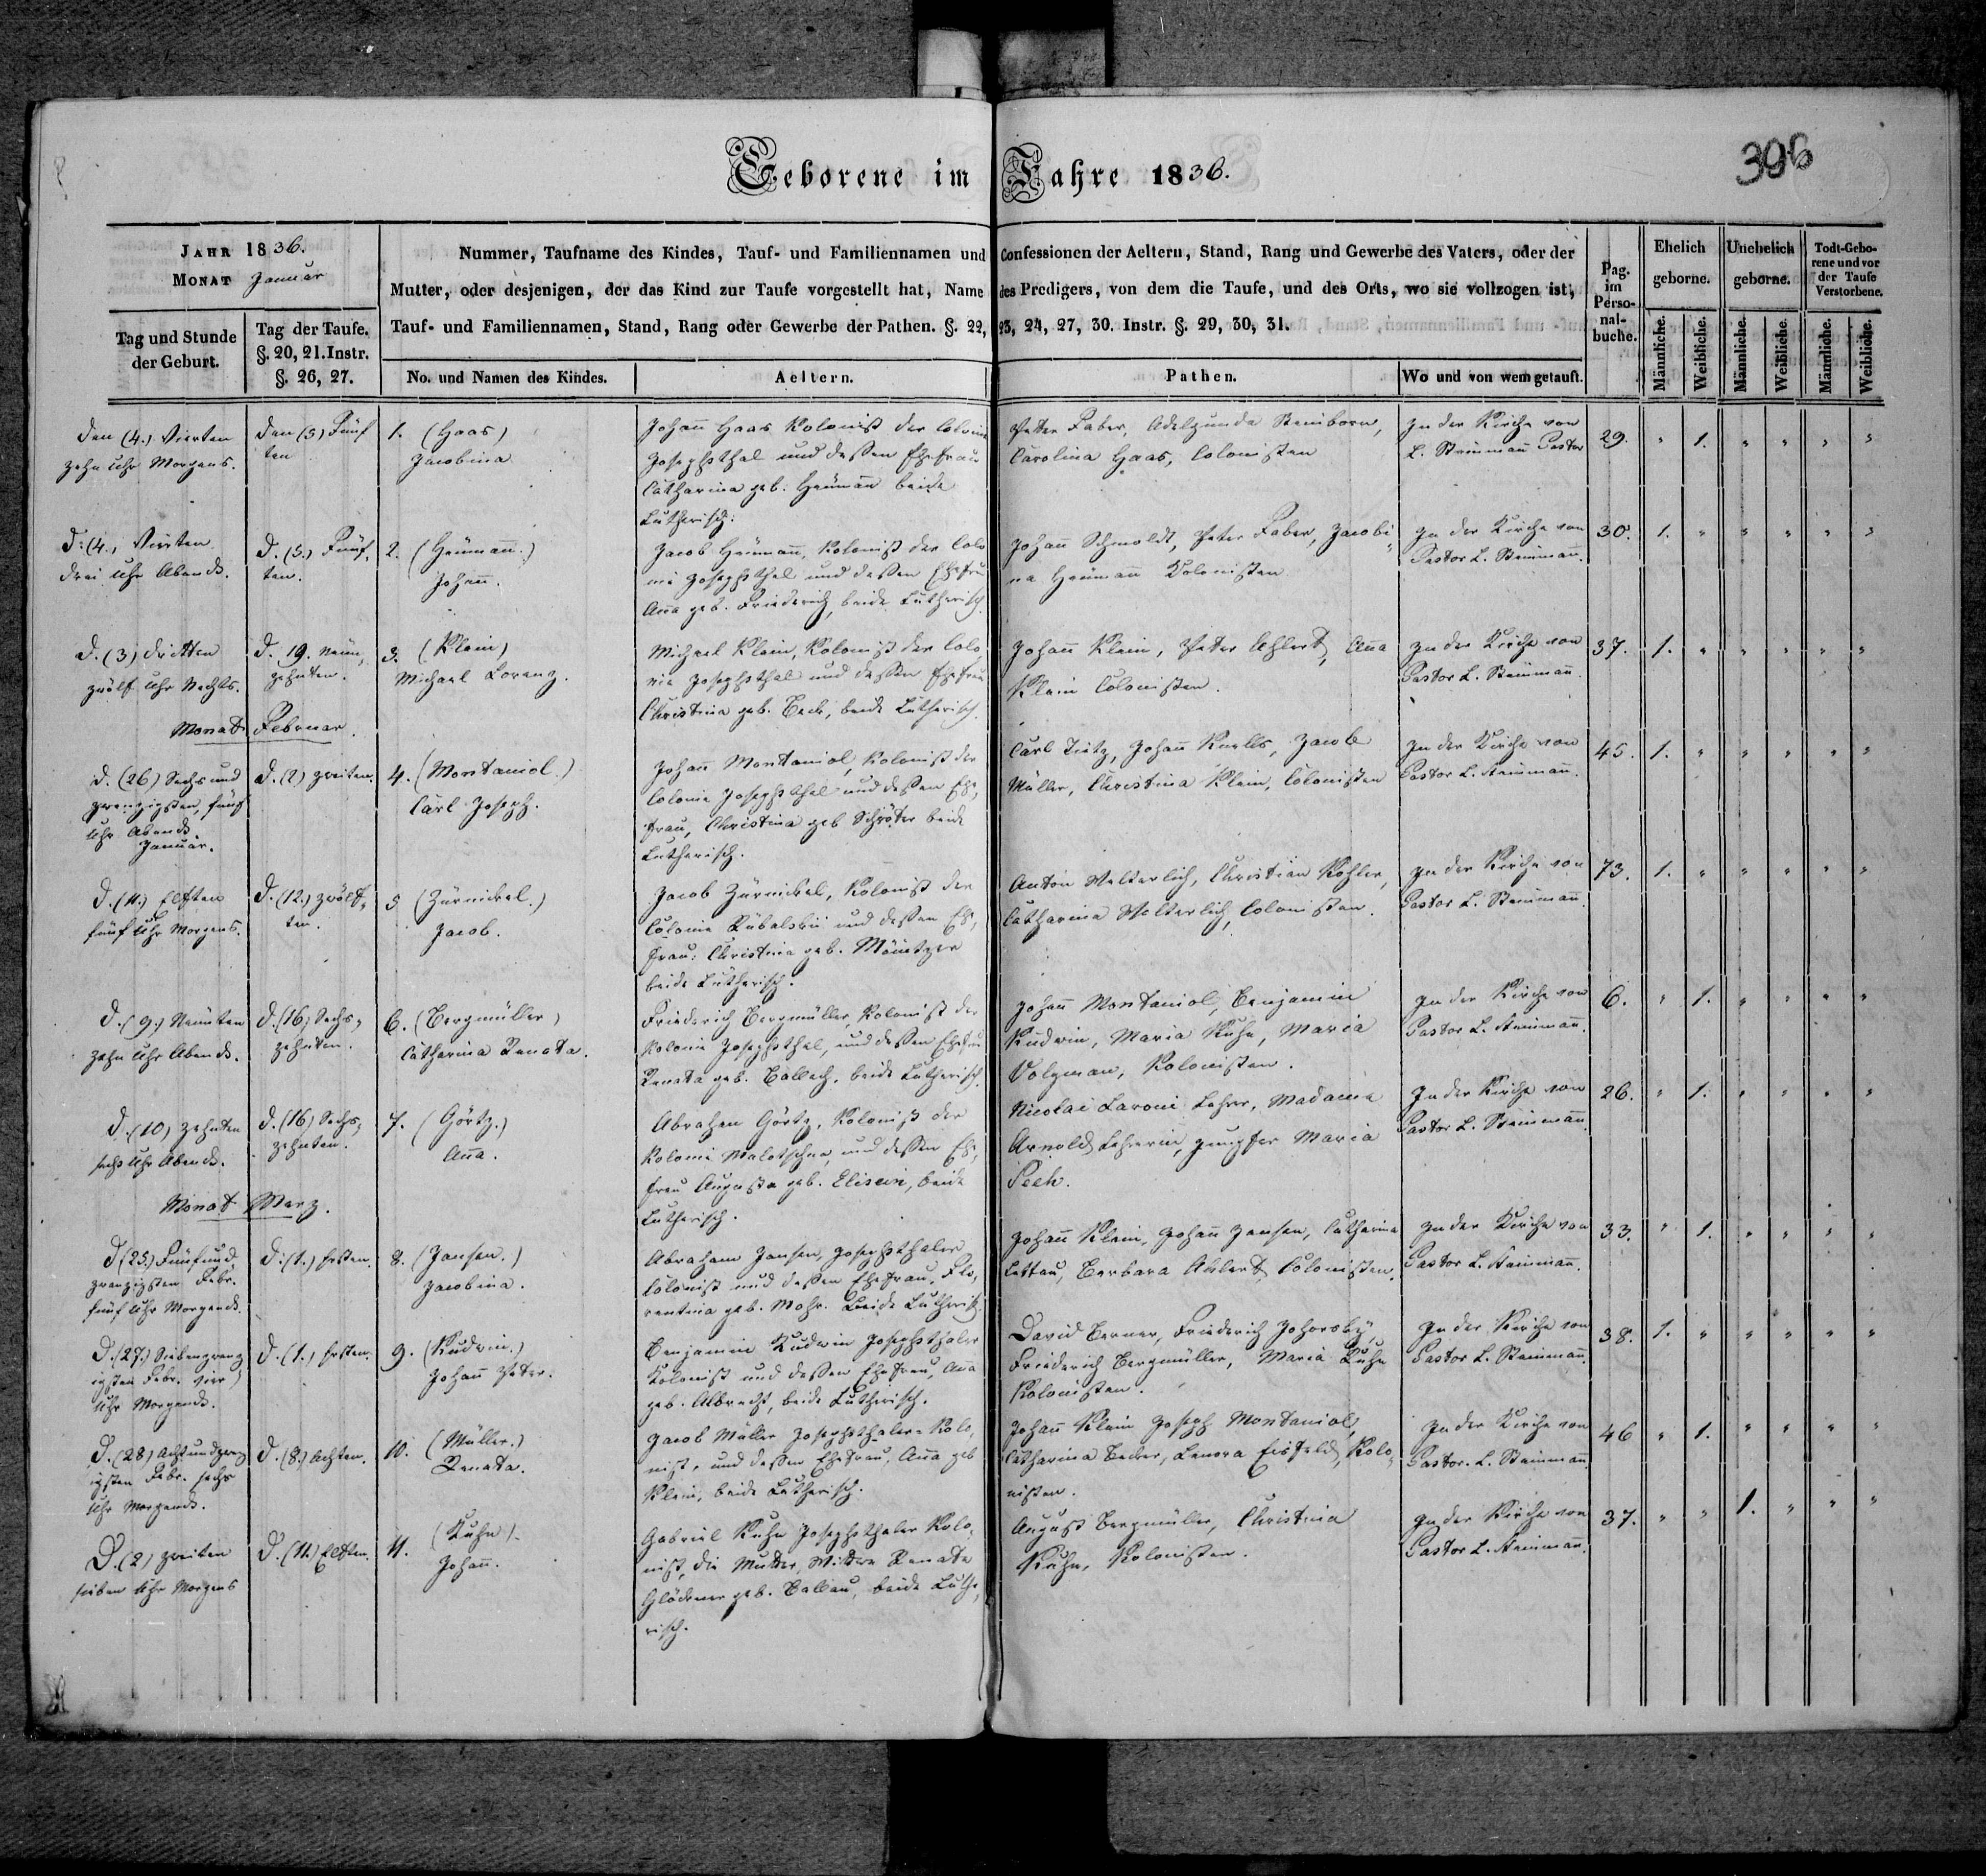 Geborene im Jahre 1836.
396
JAHR 1836.
MONAT Januar
Nummer, Taufname des Kindes, Tauf- und Familiennamen und Confessionen der Aeltern, Stand, Rang und Gewerbe des Vaters, oder der
Mutter, oder desjenigen, der das Kind zur Taufe vorgestellt hat, Name des Predigers, von dem die Taufe, und des Orts, wo sie vollzogen ist,
Tauf- und Familiennamen, Stand, Rang oder Gewerbe der Pathen. §. 22, 23, 24, 27, 30. Instr. §. 29, 30, 31.
Tag und Stunde
der Geburt.
Tag der Taufe.
§. 20, 21. Instr.
§. 26, 27.
No. und Namen des Kindes.
Aeltern.
Pathen.
Wo und von wem getauft.
Pag.
im
Perso-
nal-
buche.
Ehelich
geborne.
Unehelich
geborne.
Todt-Gebo-
rene und vor
der Taufe
Verstorbene.
Männliche.
Weibliche.
Männliche.
Weibliche.
Männliche.
Weibliche.
Den (4.) Vierten
zehn Uhr Morgens.
Den (5) Fünf
ten
1. (Haas)
Jacobina
Johann Haas Kolonist der Colonie
Josephsthal und deßen Ehefrau
Catharina geb. Heumann beide
Lutherisch.
Peter Faber, Adelgunda Steinborn,
Carolina Haas, Colonisten
In der Kirche von
L. Steinmann Pastor
29. " 1. " " " "
D. (4.) Vierten
drei Uhr Abends.
D. (5.) Fünf,
ten.
2. (Heumann.)
Johann.
Jacob Heumann, Kolonist der Colo
nie Josephsthal und deßen Ehefrau
Anna geb. Friederich, beide Lutherisch.
Johann Schmoldt, Peter Faber, Jacobi,
na Heumann Kolonisten
In der Kirche von
Pastor L. Steinmann.
30. 1. " " " " "
D. (3) dritten
zwölf Uhr Nachts.
D. 19. Neun,
zehnten.
3. (Klein)
Michael Lorenz.
Michael Klein, Kolonist der Colo
nie Josephsthal und deßen Ehefrau
Christina geb. Beck, beide Lutherisch.
Johann Klein, Peter Ahlert, Anna
Klein Colonisten.
In der Kirche von
Pastor L. Steinmann
37. 1. " " " " "
Monat Februar.
D. (26) Sechs und
zwanzigsten, fünf
Uhr Abends.
Januar.
D. (2) zweiten.
4. (Montaniol.)
Carl Joseph.
Johann Montaniol, Kolonist der
Colonie Josephsthal und deßen Ehe,
frau, Christina geb Schröter beide
Lutherisch.
Carl Tietz, Johann Knells, Jacob
Müller, Christina Klein, Colonisten
In der Kirche von
Pastor L. Steinmann.
45. 1. " " " " "
D. (11.) Elften
fünf Uhr Morgens.
D. (12.) zwölf,
ten.
5 (Zürnickel.)
Jacob.
Jacob Zürnickel, Kolonist der
Colonie Rübalskii und deßen Eh,
frau: Christina geb. Mäntzer
beide Lutherisch.
Anton Walterlich, Christian Köhler,
Catharina Walterlich, Colonisten.
In der Kirche von
Pastor L. Steinmann.
73. 1. " " " " "
D. (9.) Neunten
zehn Uhr Abends.
D. (16) Sechs,
zehnten.
6. (Bergmüller)
Catharina Renata.
Friederich Bergmüller, Kolonist der
Kolonie Josephsthal, und deßen Ehefrau
Renata geb. Ballach, beide Lutherisch.
Johann Montaniol, Benjamin
Kudwin, Maria Kuhn, Maria
Volzman, Kolonisten.
In der Kirche von
Pastor L. Steinmann.
6. " 1. " " " "
D. (10) zehnten
sechs Uhr Abends.
D. (16) Sechs,
zehnten.
7. (Görtz.)
Anna.
Abraham Görtz, Kolonist der
Kolonie Malotschna, und deßen Eh,
frau Augusta geb. Elisein, beide
Lutherisch.
Nicolai Laroni Lehrer, Madame
Arnold, Lehrerin, Jungfer Maria
Pech.
In der Kirche von
Pastor L. Steinmann.
26. " 1. " " " "
Monat Merz.
D (25.) Fünfund,
zwanzigsten Febr.
fünf Uhr Morgends.
D. (1.) Ersten.
8. (Jansen.)
Jacobina.
Abraham Jansen, Josephsthaler
Colonist und deßen Ehefrau, Flo,
rentina geb. Mohr. Beide Lutherisch.
Johann Klein, Johann Jansen, Catharina
Lettau, Barbara Ahlert, Colonisten.
In der Kirche von
Pastor L. Steinmann.
33. " 1. " " " "
D. (27.) Siebenzwanz
igsten Febr. vier
Uhr Morgends.
D. (1.) Ersten.
9. (Kudwin.)
Johann Peter.
Benjamin Kudwin Josephsthaler
Kolonist und deßen Ehefrau, Anna
geb. Albrecht, beide Lutherisch.
David Berner, Friederich Johorsky,
Friederich Bergmüller, Maria Kuhn
Kolonisten.
In der Kirche von
Pastor L. Steinmann.
38. 1. " " " " "
D. (28) Achtundzwanz
igsten Febr. sechs
Uhr Morgends.
D. (8.) Achten.
10. (Müller.)
Renata.
Jacob Müller Josephsthaler-Kolo,
nist, und deßen Ehefrau, Anna geb
Klein, beide Lutherisch.
Johann Klein Joseph Montaniol,
Catharina Becker, Lenora Eisfeld, Kolo,
nisten.
In der Kirche von
Pastor. L. Steinmann
46 " 1. " " " "
D. (2) zweiten
sieben Uhr Morgens
D. (11.) Elften.
11. (Kuhn).
Johann.
Gabriel Kuhn Josephsthaler Kolo,
nist, die Mutter, Wittwe Renata
Glöckner geb. Ballau, beide Luthe,
risch.
August Bergmüller, Christina
Kuhn, Kolonisten.
In der Kirche von
Pastor L. Steinmann.
37. " " 1. " " "